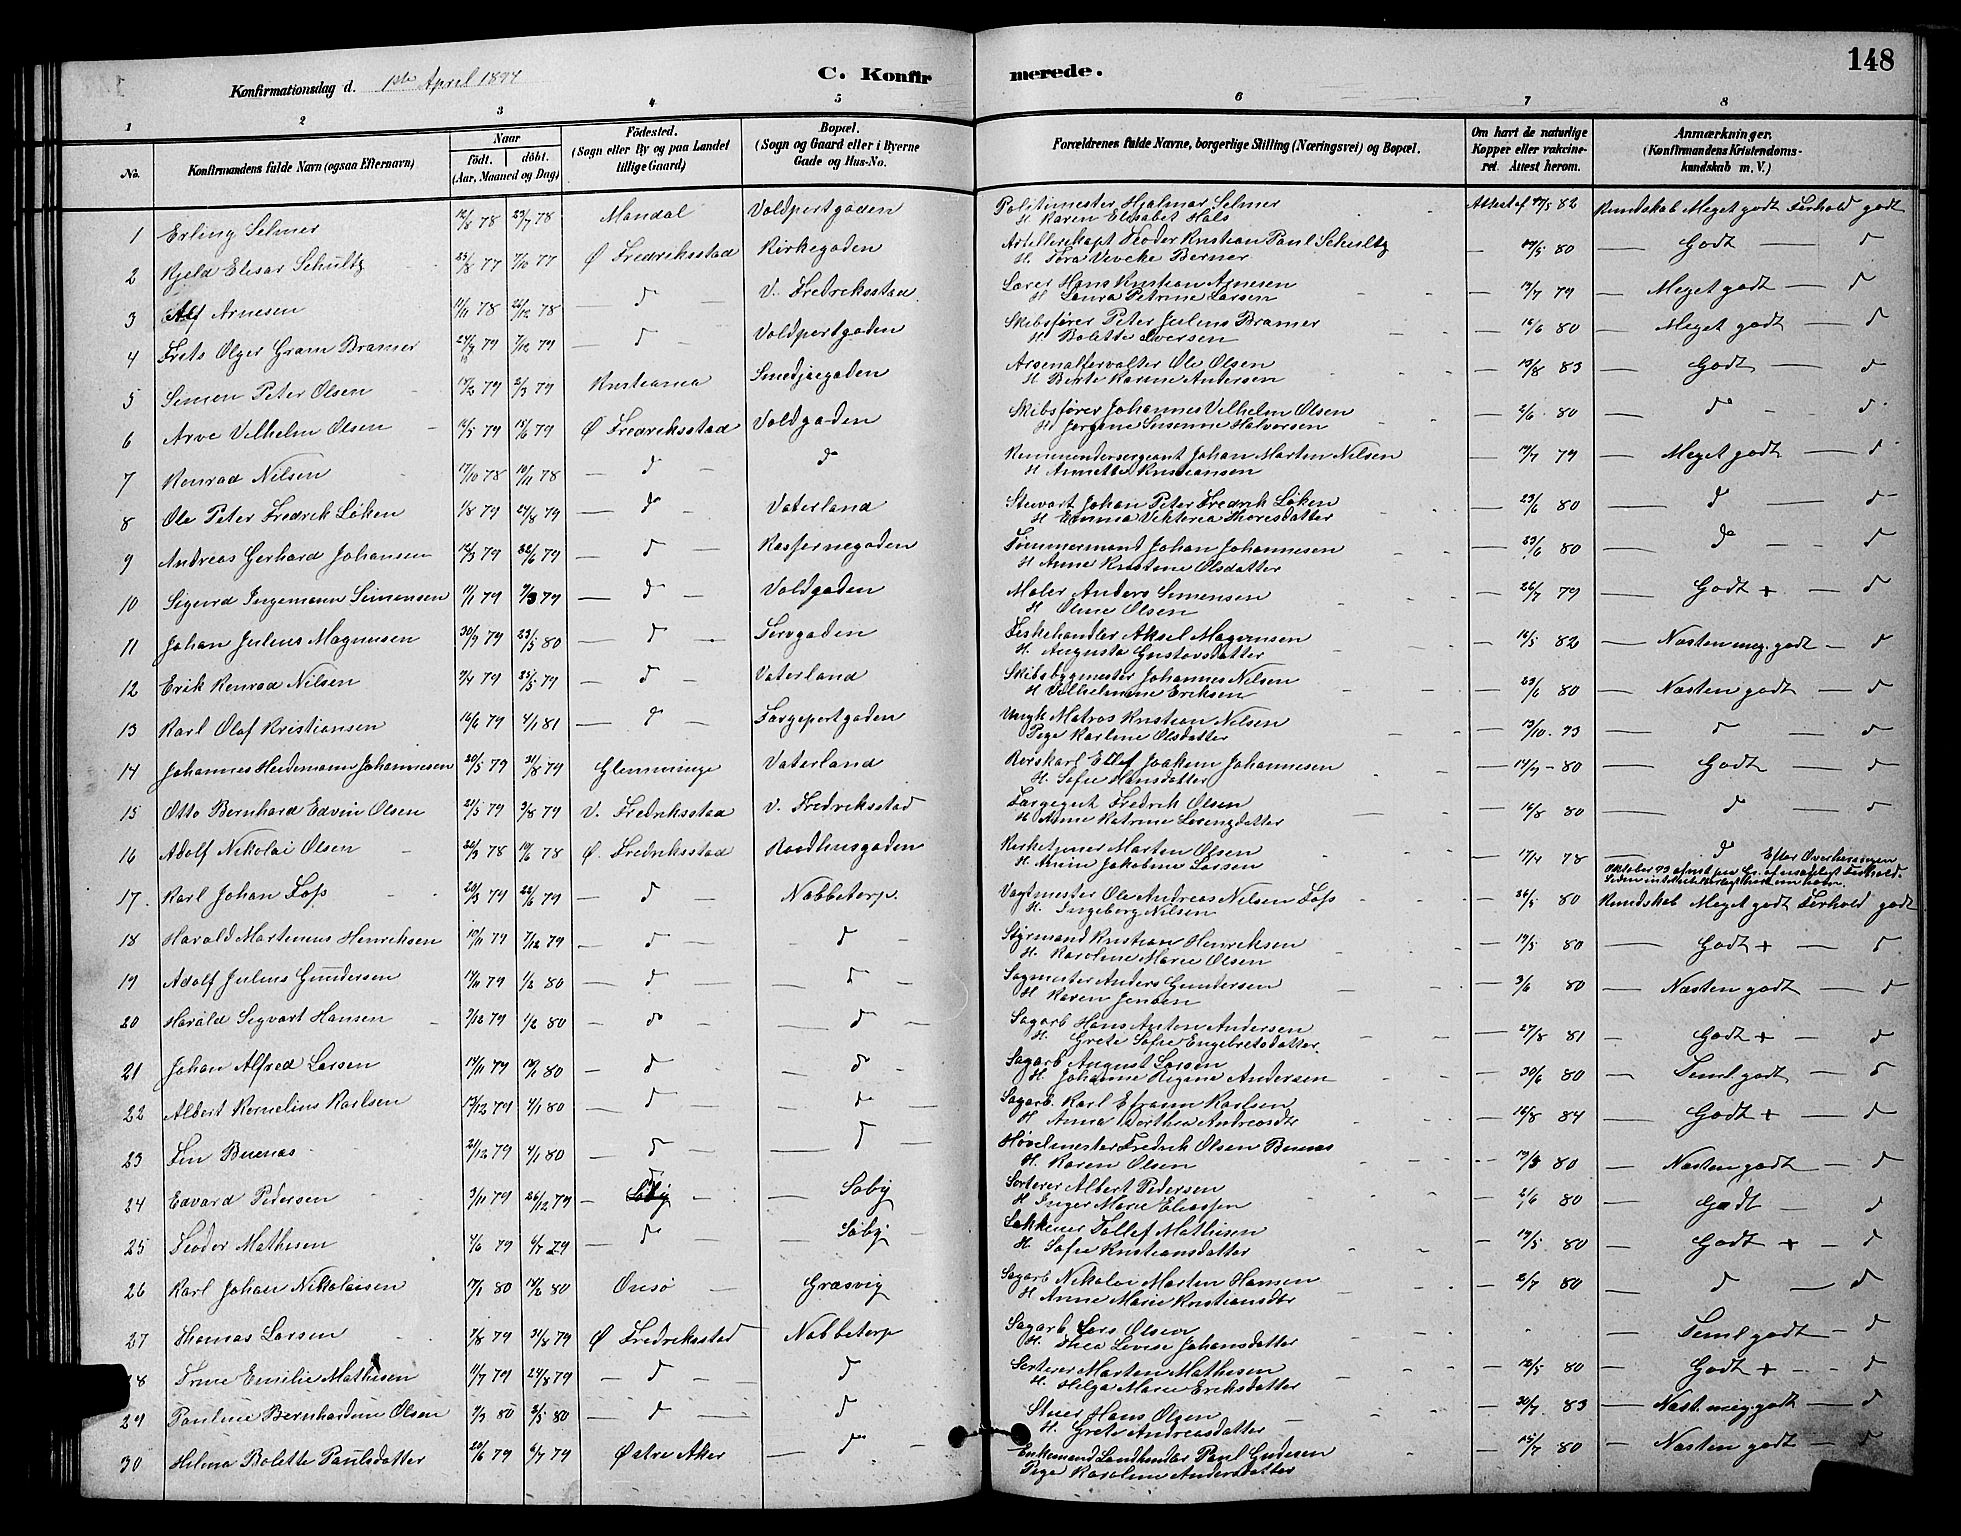 148
Konfirmationsdag d. 1ste April 1894
C. Konfirmerede.
1 2 3 4 5 6 7 8
No.
Konfirmandens fulde Navn (ogsaa Efternavn)
Naar
født. døbt.
(Aar, Maaned og Dag)
Fødested.
(Sogn eller By og paa Landet
tillige Gaard)
Bopæl.
(Sogn og Gaard eller i Byerne
Gade og Hus-No.
Forældrenes fulde Navne, borgerlige Stilling (Næringsvei) og Bopæl.
Om havt de naturlige
Kopper eller vakcine-
ret. Attest herom.
Anmærkninger.
(Konfirmandens Kristendoms-
kundskab m. V.)
1 Erling Selmer 12/6 78 23/7 78 Mandal Voldportgaden Politimester Hjalmar Selmer Attest af 82 Kundskab Meget godt Forhold godt
H. Karen Elisabet Hals
2 Kjeld Elisar Schultz 23/8 77 7/10 77 Ø Fredriksstad Kirkegaden Artillerikapt Teodor Kristian Paul Schultz 80 — Godt — d
H. Tora Viveke Berner
3 Alf Arnesen 11/11 78 26/12 78 — d — V. Fredriksstad Lærer Hans Kristian Arnesen — 79 — Meget godt — d
H Laura Petrine Larsen
4 Frits Olger Gram Bramer 79 7/12 79 — d — Voldportgaden Skibsfører Peter Julius Bramer — 16/6 80 — Meget godt — d
H Bolette Iversen
5 Simon Peter Olsen 17/2 79 2/3 79 Kristiania Smedjegaden Arsenalforvalter Ole Olsen — 13/8 83 — Godt — d
H Berte Karine Andersen
6 Arve Vilhelm Olsen 79 15/6 79 Ø Fredriksstad Voldgaden Skibsfører Johannes Vilhelm Olsen — 2/6 80 — do — d
H Jørgine Susanne Halversen
7 Konrad Nilsen 17/10 78 10/11 78 — d — do Kommandersergeant Johan Martin Nilsen — 79 — Meget godt — d
H Annette Kristiansen
8 Ole Peter Fredrik Løken 1/8 79 24/8 79 — do — Vaterland Stuvart Johan Peter Fredrik Løken — 23/6 80 — d — d
H Emma Viktoria Thoresdatter
9 Andreas Gerhard Johansen 12/3 79 22/6 79 — d — Kasernegaden Tømmermand Johan Johannesen — 23/6 80 — do — d
H Anne Kristine Olsdatter
10 Sigurd Ingemann Simensen 11/1 79 9/3 79 — d — Voldgaden Maler Anders Simensen — 26/7 79 — Godt + — d
H Oline Olsen
11 Johan Julius Magnusen 30/9 79 23/5 80 — d — Torvgaden Fiskehandler Aksel Magnusen — 16/5 82 — Næsten meg. godt — d
H. Augusta Gustavsdatter
12 Erik Konrad Nilsen 7/4 79 25/5 79 — d — Vaterland Skibsbygmester Johannes Nilsen — 23/6 80 — Næsten godt — d
H Vilhelmine Eriksen
13 Karl Olaf Kristiansen 16/6 79 4/1 81 — d — Færgeportgaden Ungk Matros Kristian Nilsen — 13/10 93 — d — d
Pige Karline Olsdatter
14 Johannes Heidemann Johannesen 20/5 79 31/8 79 Glemminge Vaterland Rorskarl Ellef Joakim Johannesen — 80 — Godt — d
H. Sofie Hansdatter
15 Otto Bernhard Edvin Olsen 21/5 79 3/8 79 V. Fredriksstad V. Fredriksstad Færgegut Fredrik Olsen — 16/8 80 — d — d
H Anne Katrine Lorensdatter
16 Adolf Nikolai Olsen 20/3 78 10/6 78 Ø. Fredriksstad Raadhusgaden Kirketjener Martin Olsen — 17/4 78 — d Efter Overhøringen
H. Anine Jakobine Larsen
Oktober 93
17. Karl Johan Foss 20/3 79 22/6 79 — d — Nabbetorp. Vagtmester Ole Andreas Nilsen Foss — 26/5 80 Kundskab Meget godt Forhold godt
H. Ingeborg Nilsen
18 Harald Martinius Henriksen 10/11 79 7/12 79 — d — — d — Styrmand Kristian Henriksen — 19/5 80 — Godt + — d
H. Karoline Marie Olsen
19 Adolf Julius Gundersen 14/11 79 1/2 80 — d — d — Sagmester Anders Gundersen — 3/6 80 — Næsten godt — d
H Karen Jensen
20 Harald Sigvart Hansen 7/12 79 1/2 80 — do — d — Sagarb Hans Anton Andersen — 27/8 81 — Godt + — d
H. Grete Sofie Engebretsdatter
21 Johan Alfred Larsen 14/11 79 80 — d — do — Sagarb August Larsen — 30/6 80 — Teml godt — d
H. Johanne Regine Andersen
22 Albert Kornelius Karlsen 13/12 79 4/1 80 — d — do — Sagarb. Karl Efraim Karlsen — 16/8 84 — Godt + — d
H Anna Dorthea Andreasdtr
23 Finn Buenæs 21/12 79 4/1 80 — d — d — Høvelmester Fredrik Olsen Buenæs — 80 — Næsten godt — d
H. Karen Olsen
24 Edvard Pedersen 3/11 79 26/12 79 — d — Søby Sorterer Albert Pedersen — 2/6 80 — Godt — d
H Inger Marie Eliassen
25 Teodor Mathisen 4/6 79 6/7 79 — do — Søby Løkkeeier Tollef Mathisen — 19/5 80 — Godt + — d
H. Sofie Kristiansdatter
26 Karl Johan Nikolaisen 17/1 80 80 Onsø — Græsvig Sagarb Nikolai Martin Hansen — 2/7 80 — d — d
H Anne Marie Kristiansdtr
27 Thomas Larsen 7/8 79 31/8 79 Ø Fredriksstad Nabbetorp Sagarb Lars Olsen — Teml godt — d
H. Thea Lovise Johansdatter
28 Trine Emilie Mathisen 11/7 79 24/8 79 — d — d Sorterer Martin Mathisen — 12/5 80 — Godt + — d
H. Helga Marie Eriksdatter
29 Pauline Bernhardine Olsen 7/3 80 2/5 80 — d — d Stuer Hans Olsen — 30/7 83 — Næst. meg. godt — d
H. Grete Andreasdatter
30 Helena Bolette Paulsdatter 29/6 79 6/7 79 Østre Aker — do — Enkemand Landhandler Paul Gudesen — 15/7 80 — Næsten godt — d
Pige Karoline Andersdatter